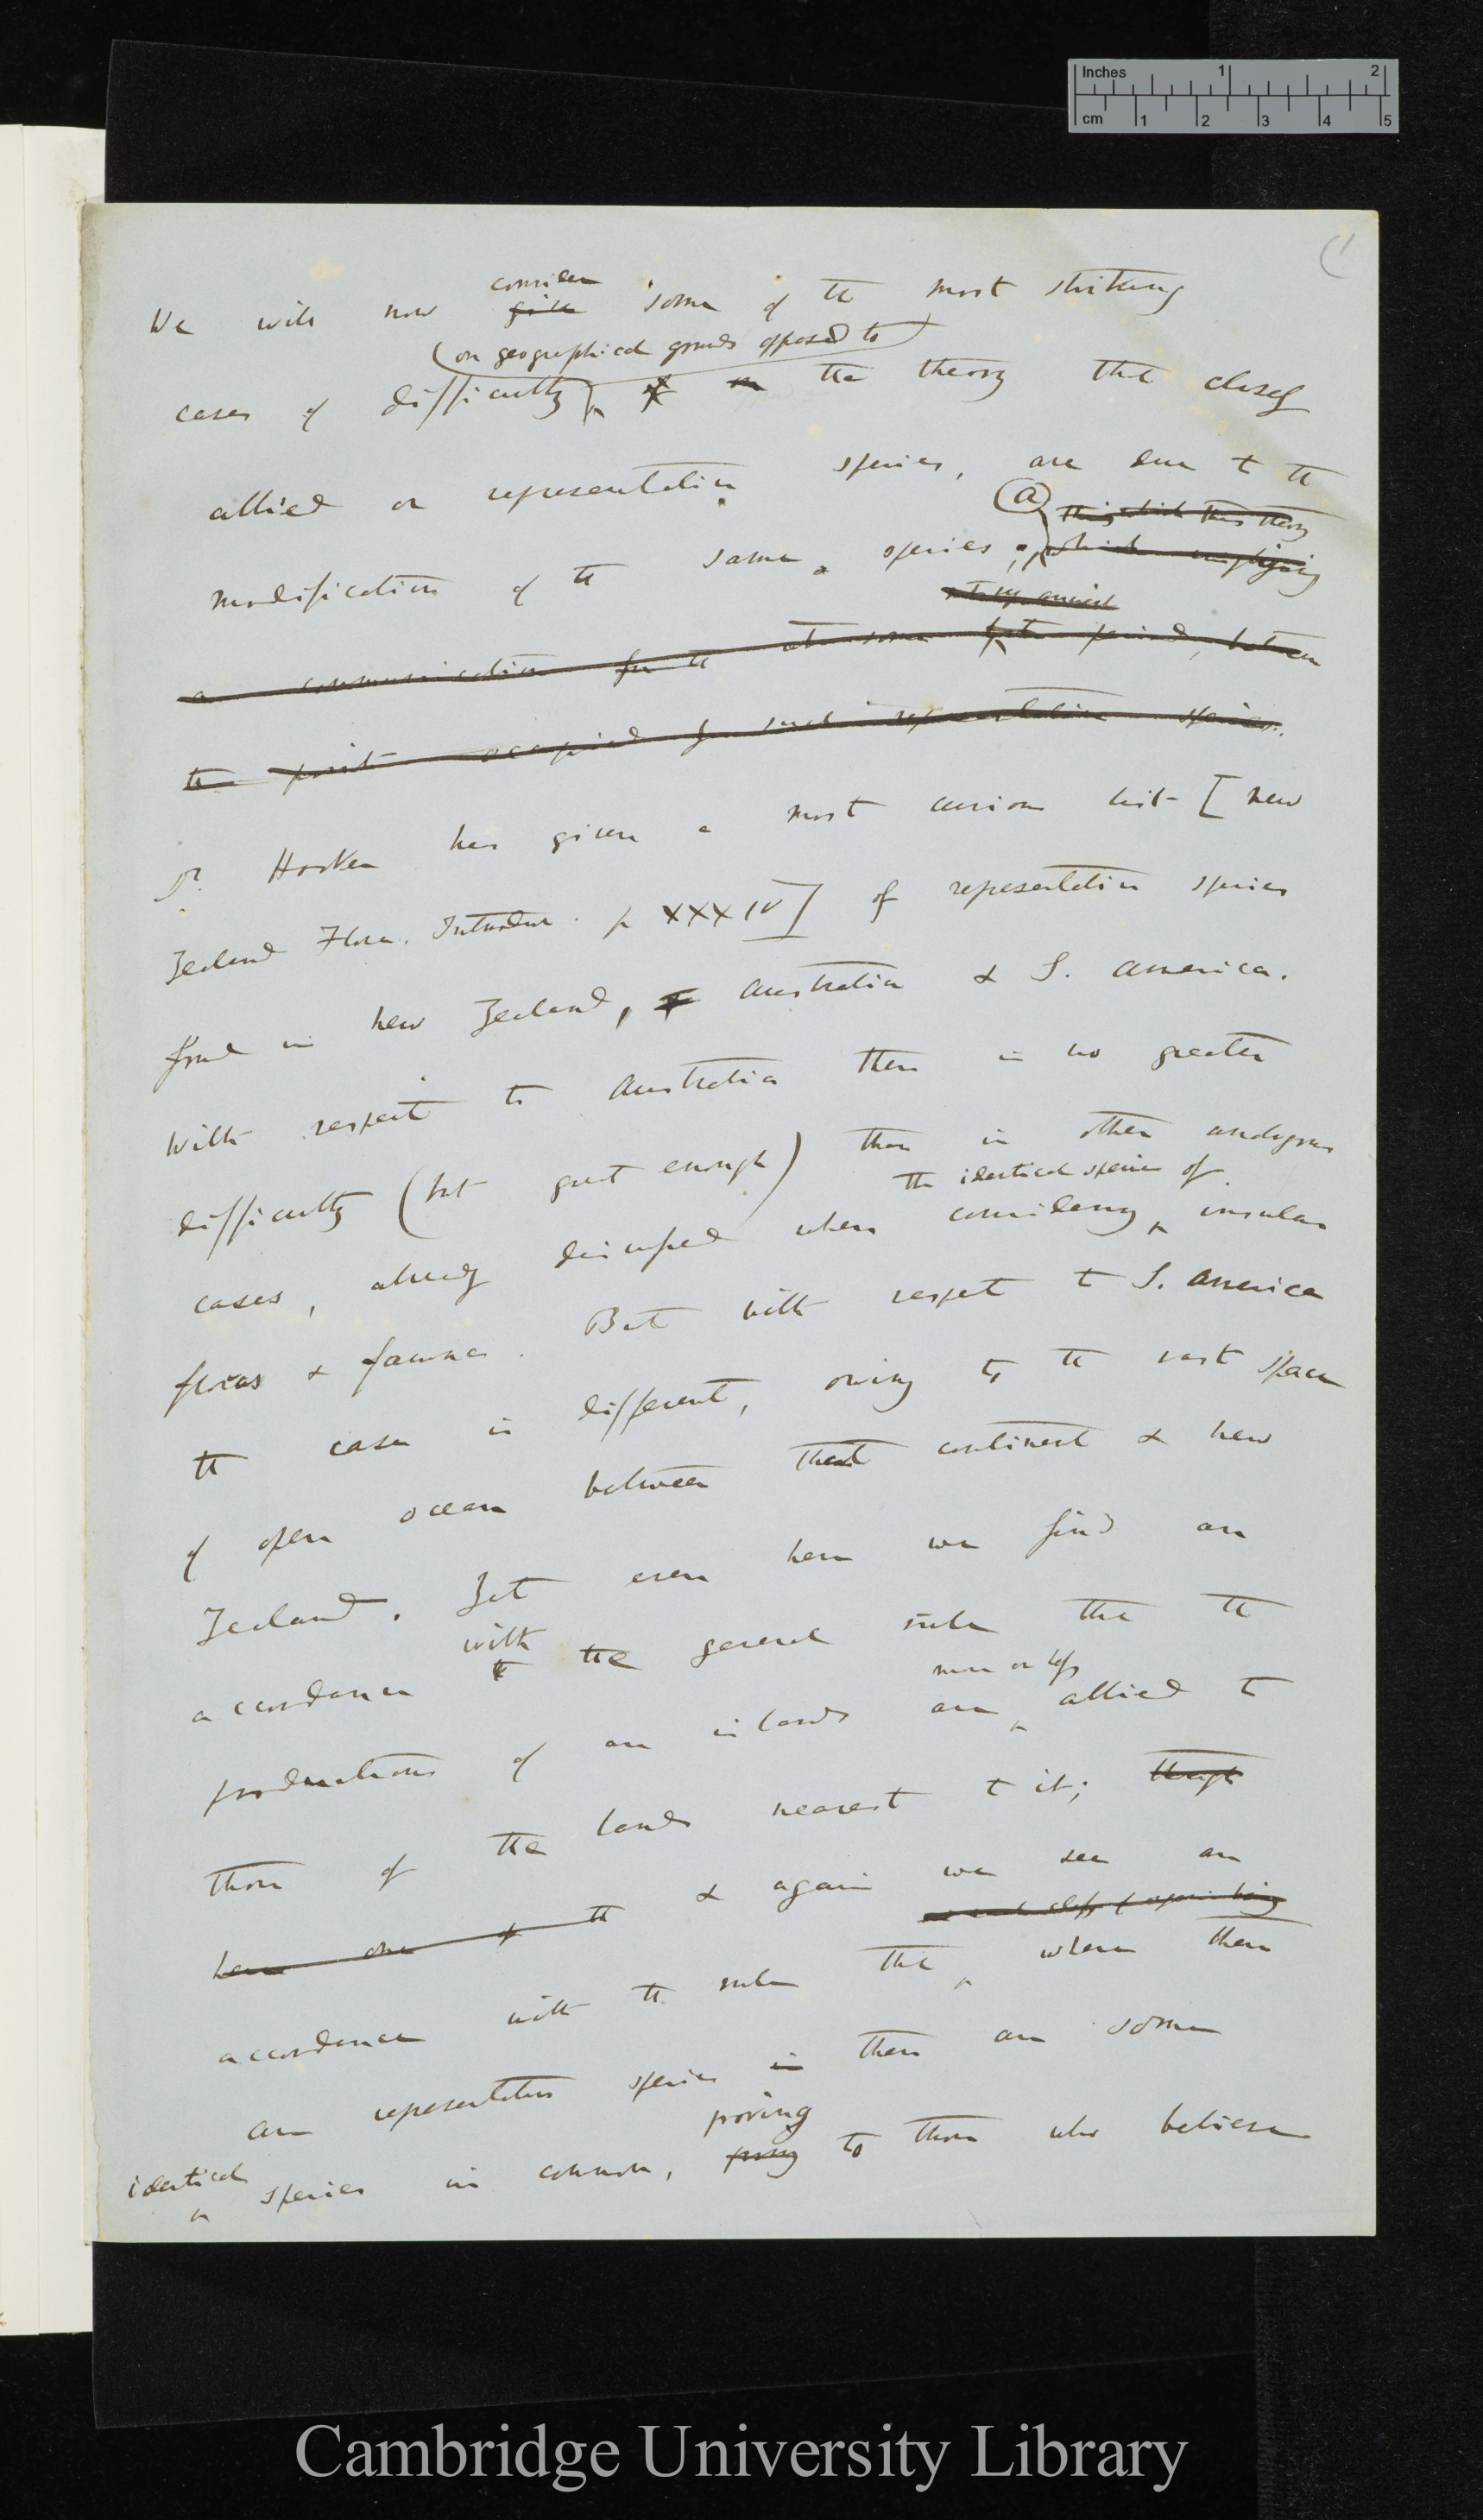 Inches 1 2
cm 1 2 3 4 5
(1
consider
We will now give some of the most striking
(on geographical grounds opposed to)
cases of difficulty, of on the theory that closely
allied or representative species, are due to the
(a) this which this theory
modification of the same species, which implying
at very ancient
a communication for the at some former period, between
the points occupied by such representative species.
Dr Hooker has given a most curious list [New
Zealand Flora. Introduc. p XXXIV] of representative species
found in New Zealand, Australia & S. America.
With respect to Australia there is no greater
difficulty (but great enough) than in other analogous
the identical species of
cases, already discussed when considering insular
floras & faunas. But with respect to S. America
the case is different, owing to the vast space
of open ocean between that continent & New
Zealand. Yet even here we find an
with
accordance to the general rule that the
more or less
productions of an island are allied to
those of the land nearest to it; though
here one of the & again we see an
accordance with the rule that where there
are representative species in there are some
proving
identical species in common, to those who believe
Cambridge University Library